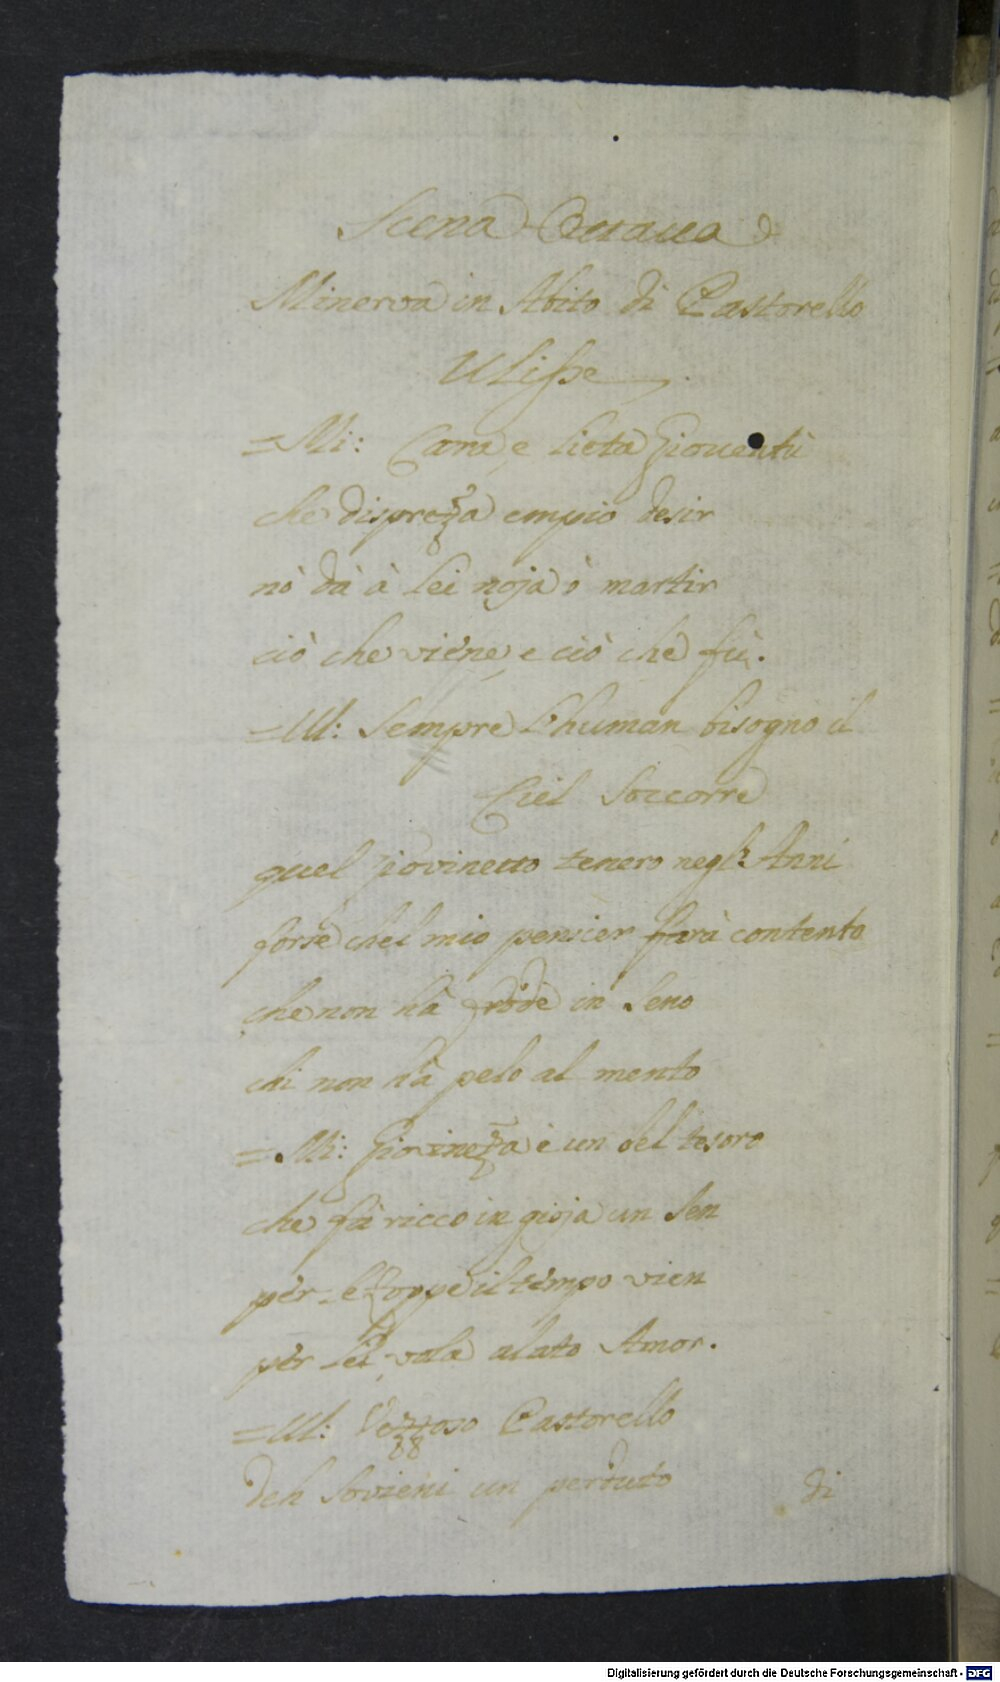 Scena Ottaua
Minerva in Abito di Pastorello
Ulisse
=Mi: Cara e lieta Gioventù
che disprezza empio desir
nò dà à lei noja ò martir
ciò che viene, e ciò che fù.
=Ul: Sempre l'human bisogno il
Ciel Soccorre
quel giovinetto tenero negl'Anni
forse chel mio pensier farà contento
che non hà frode in Seno
chi non hà pelo al mento
=Mi: Giovinezza è un bel tesoro
che fà ricco in gioja un Sen
per lei zoppo il tempo vien
per lei vola alato Amor.
=Ul: Vezzoso Pastorello
deh Sovieni un perduto
di
Digitalisierung gefördert durch die Deutsche Forschungsgemeinschaft - DFG